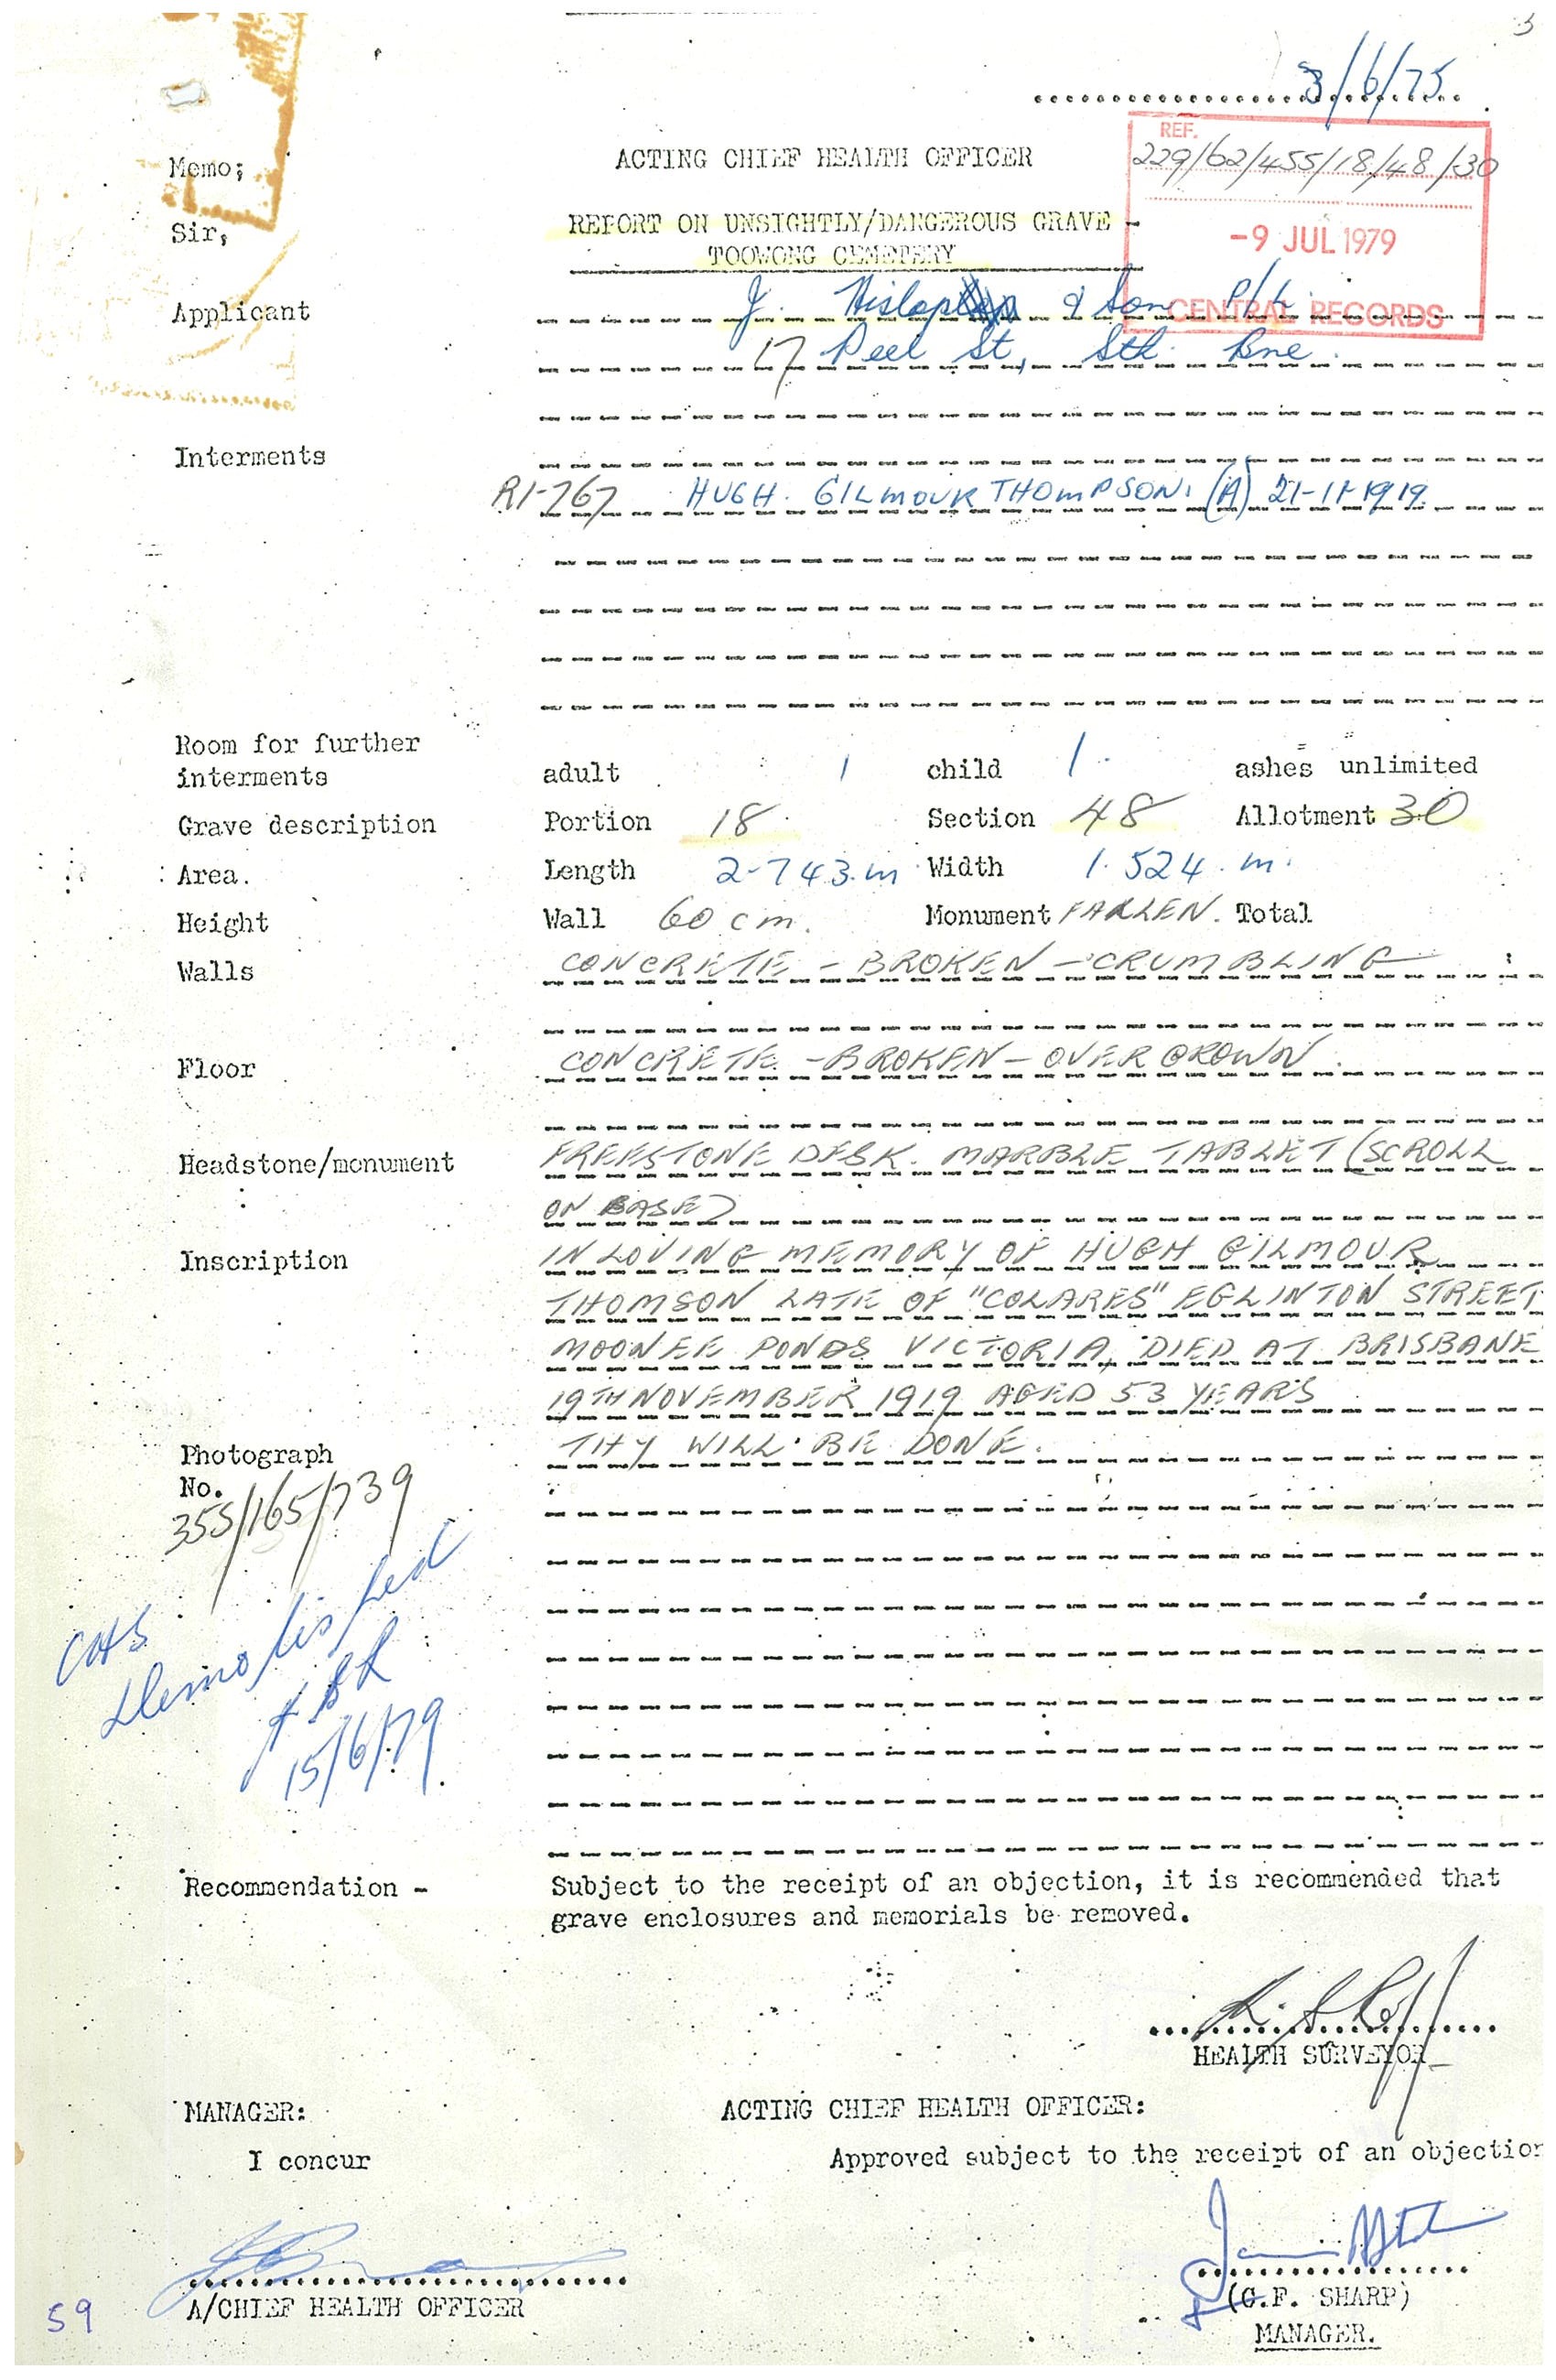 3/6/75
REF.
229/62/455/18/48/30
-9 JUL 1979
CENTRAL RECORDS
Memo;
ACTING CHIEF HEALTH OFFICER
Sir,
REPORT ON UNSIGHTLY/DANGEROUS GRAVE -
TOOWONG CEMETERY
Applicant J. Hislop & Son P/L.
17 Peel St, Sth. Bne.
Interments
R1-767 HUGH. GILMOUR THOMPSON. (A) 21-11-1919.
Room for further
interments adult 1 child 1. ashes unlimited
Grave description Portion 18. Section 48 Allotment 30
Area. Length 2-743.m Width 1.524.m.
Height Wall 60 cm. Monument FALLEN. Total
Walls CONCRETE - BROKEN - CRUMBLING
Floor CONCRETE - BROKEN - OVERGROWN.
Headstone/monument FREESTONE DESK. MARBLE TABLET (SCROLL
ON BASE)
Inscription IN LOVING MEMORY OF HUGH GILMOUR
THOMSON LATE OF "COLARES" EGLINTON STREET
MOONEE PONDS VICTORIA, DIED AT BRISBANE
19TH NOVEMBER 1919 AGED 53 YEARS
THY WILL BE DONE.
Photograph
No.
355/165/739
CHS
Demolished
15/6/79
Recommendation - Subject to the receipt of an objection, it is recommended that
grave enclosures and memorials be removed.
HEALTH SURVEYOR
MANAGER: ACTING CHIEF HEALTH OFFICER:
I concur Approved subject to the receipt of an objection
A/CHIEF HEALTH OFFICER
(G.F. SHARP)
MANAGER.
59